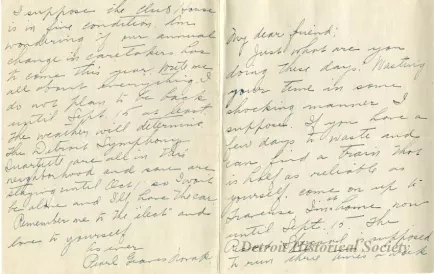 My dear friend:
Just what are you
doing these days? Wasting
your time in some
shocking manner I
suppose. If you have a
few days to waste and
can find a train that
is half as reliable as
yourself come on up to
Traverse. I'm home now
until Sept. 15. The
supposed
to run three times a week
I suppose the club house
is in fine condition. Am
wondering if our annual
change in caretakers has
to come this year. Write me
all about everything. I
do not plan to be back
until Sept. 15 at least.
The weather will determine.
The Detroit Symphony
Quartette are all in this
neighborhood and some are
staying until Oct., so I won't
be alone and I'll have the car.
Remember me to the elect and
love to yourself
As ever
Pearl
Detroit Historical Society